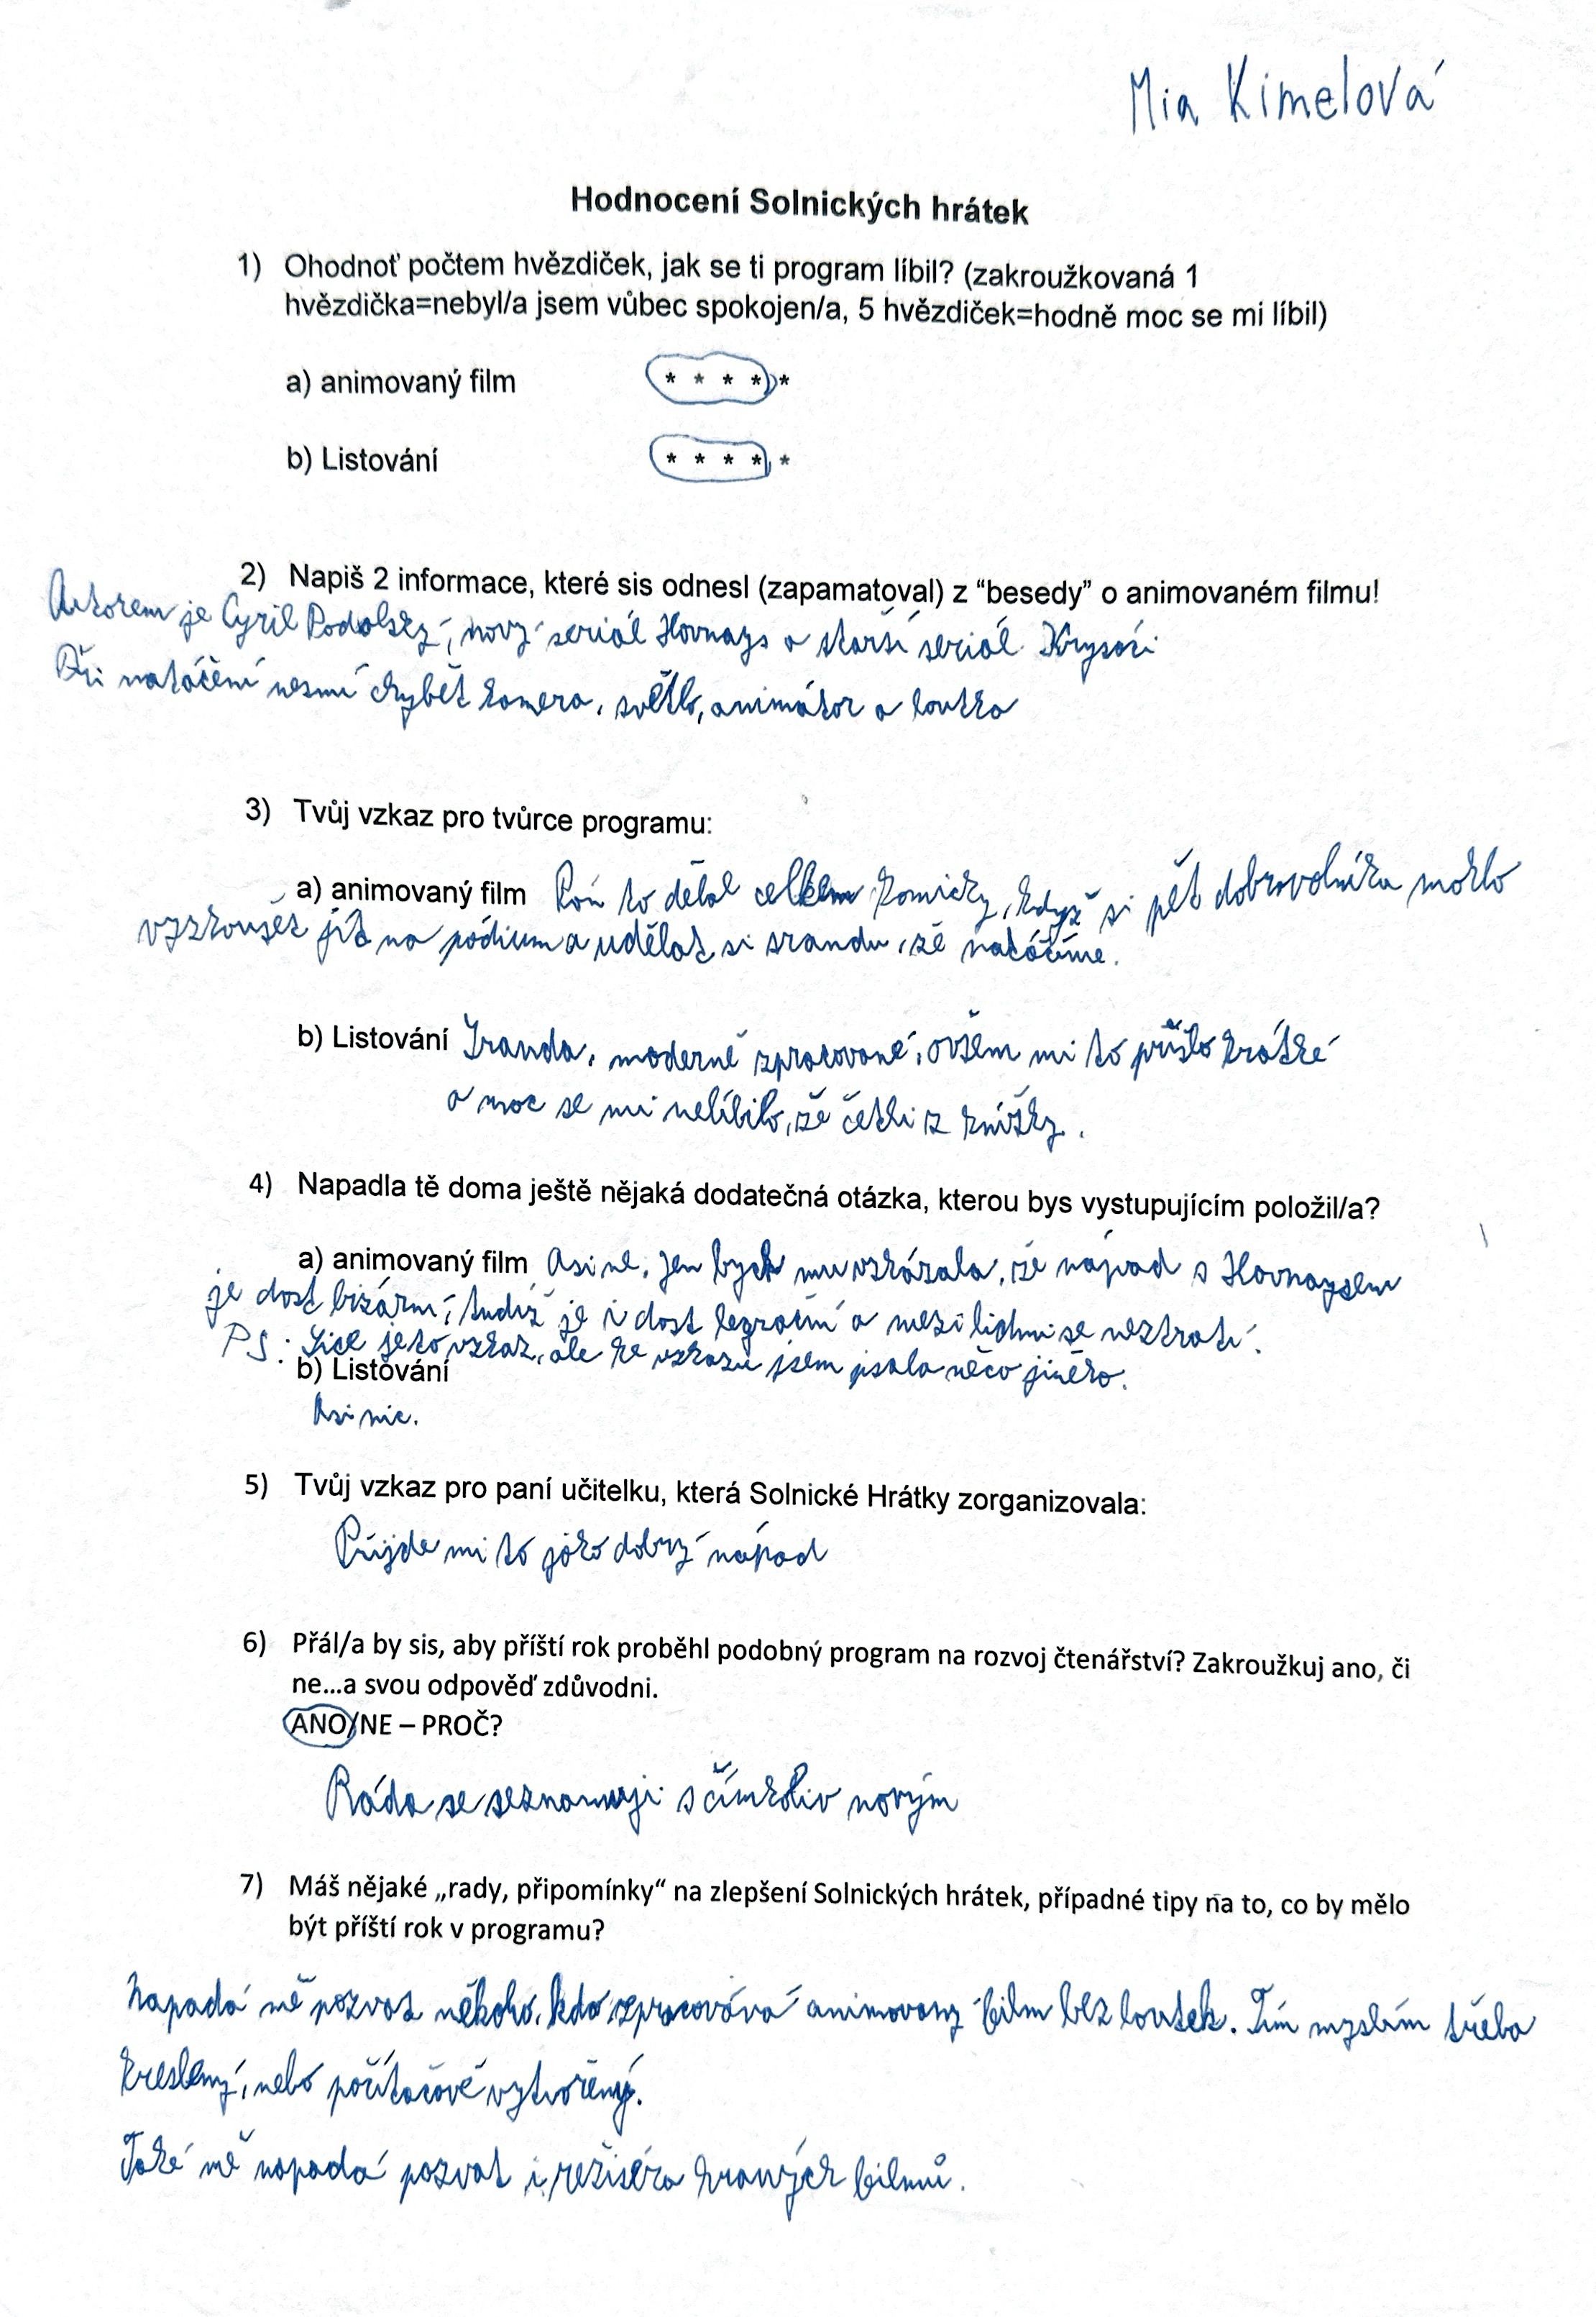 Mia Kimelová
Hodnocení Solnických hrátek
1) Ohodnoť počtem hvězdiček, jak se ti program líbil? (zakroužkovaná 1
hvězdička=nebyl/a jsem vůbec spokojen/a, 5 hvězdiček=hodně moc se mi líbil)
a) animovaný film * * * * *
b) Listování * * * * *
2) Napiš 2 informace, které sis odnesl (zapamatoval) z “besedy” o animovaném filmu!
Autorem je Cyril Podolský, nový seriál Hovnajs a starší seriál Krysáci
Při natáčení nesmí chybět kamera, světlo, animátor a loutka
3) Tvůj vzkaz pro tvůrce programu:
a) animovaný film Pán to dělal celkem komicky, když si pět dobrovolníků mohlo
vyzkoušet jít na pódium a udělat si srandu, že natáčíme.
b) Listování Sranda, moderně zpracované, ovšem mi to přišlo krátké
a moc se mi nelíbilo, že četli z knížky.
4) Napadla tě doma ještě nějaká dodatečná otázka, kterou bys vystupujícím položil/a?
a) animovaný film Asi ne, jen bych mu vzkázala, že nápad s Hovnajsem
je dost bizární, tudíž je i dost legrační a mezi lidmi se neztratí.
PS: Sice je to vzkaz, ale ke vzkazu jsem psala něco jiného.
b) Listování
Asi nic.
5) Tvůj vzkaz pro paní učitelku, která Solnické Hrátky zorganizovala:
Příjde mi to jako dobrý nápad
6) Přál/a by sis, aby příští rok proběhl podobný program na rozvoj čtenářství? Zakroužkuj ano, či
ne...a svou odpověď zdůvodni.
ANO/NE – PROČ?
Ráda se seznamuji s čímkoliv novým
7) Máš nějaké „rady, připomínky“ na zlepšení Solnických hrátek, případné tipy na to, co by mělo
být příští rok v programu?
Napadá mě pozvat někoho, kdo zpracovává animovaný film bez loutek. Tím myslím třeba
kreslený, nebo počítačově vytvořený.
Také mě napadá pozvat i režiséra hraných filmů.